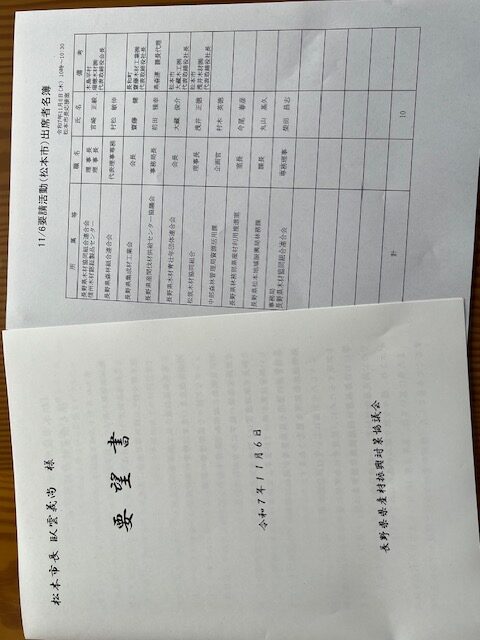 11/6要請活動（松本市）出席者名簿
令和7年11月6日（木） 10時～10:30
松本市長応接室
所属等 職名 氏名 備考
長野県木材協同組合連合会 理事長 宮崎 正毅 木島平村
信州木材認証製品センター 理事長 瑞穂木材㈱ 代表取締役会長
長野県森林組合連合会 代表理事専務 村松 敏伸
長野県集成材工業会 会長 齋藤 健 長和町 齋藤木材工業㈱ 代表取締役社長
長野県産間伐材供給センター協議会 事務局長 前田 課長代理
長野県木材青壮年団体連合会 会長 大蔵 俊介 松本市 大蔵木工㈱ 代表取締役社長
松筑木材協同組合 理事長 浅井 正 松本市 浅井木材㈱ 代表取締役社長
中部森林管理局 企画官 村木 英
長野県林務部県産材利用推進室 室長
長野県松本地域振興局林務課 課長 丸山
事務局
長野県木材協同組合連合会 専務理事 柴田 昌志
計 10
松本市長 臥雲義尚 様
要望書
令和7年11月6日
長野県県産材振興対策協議会